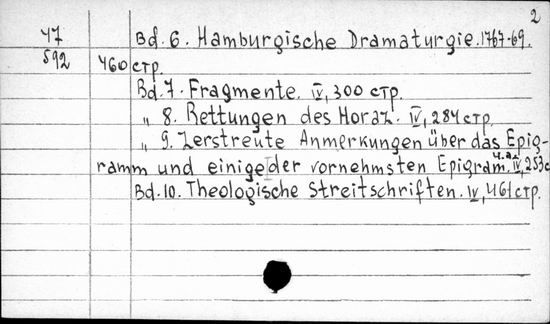 2
47 Bd. 6. Hamburgische Dramaturgie. 1767-69.
592 460 стр.
Bd. 7. Fragmente. IV, 300 стр.
„ 8. Rettungen des Horaz. IV, 284 стр.
„ 9. Zerstreute Anmerkungen über das Epig-
ramm und einige der vornehmsten Epigram. IV, 253 с
Bd. 10. Theologische Streitschriften. IV, 461 стр.